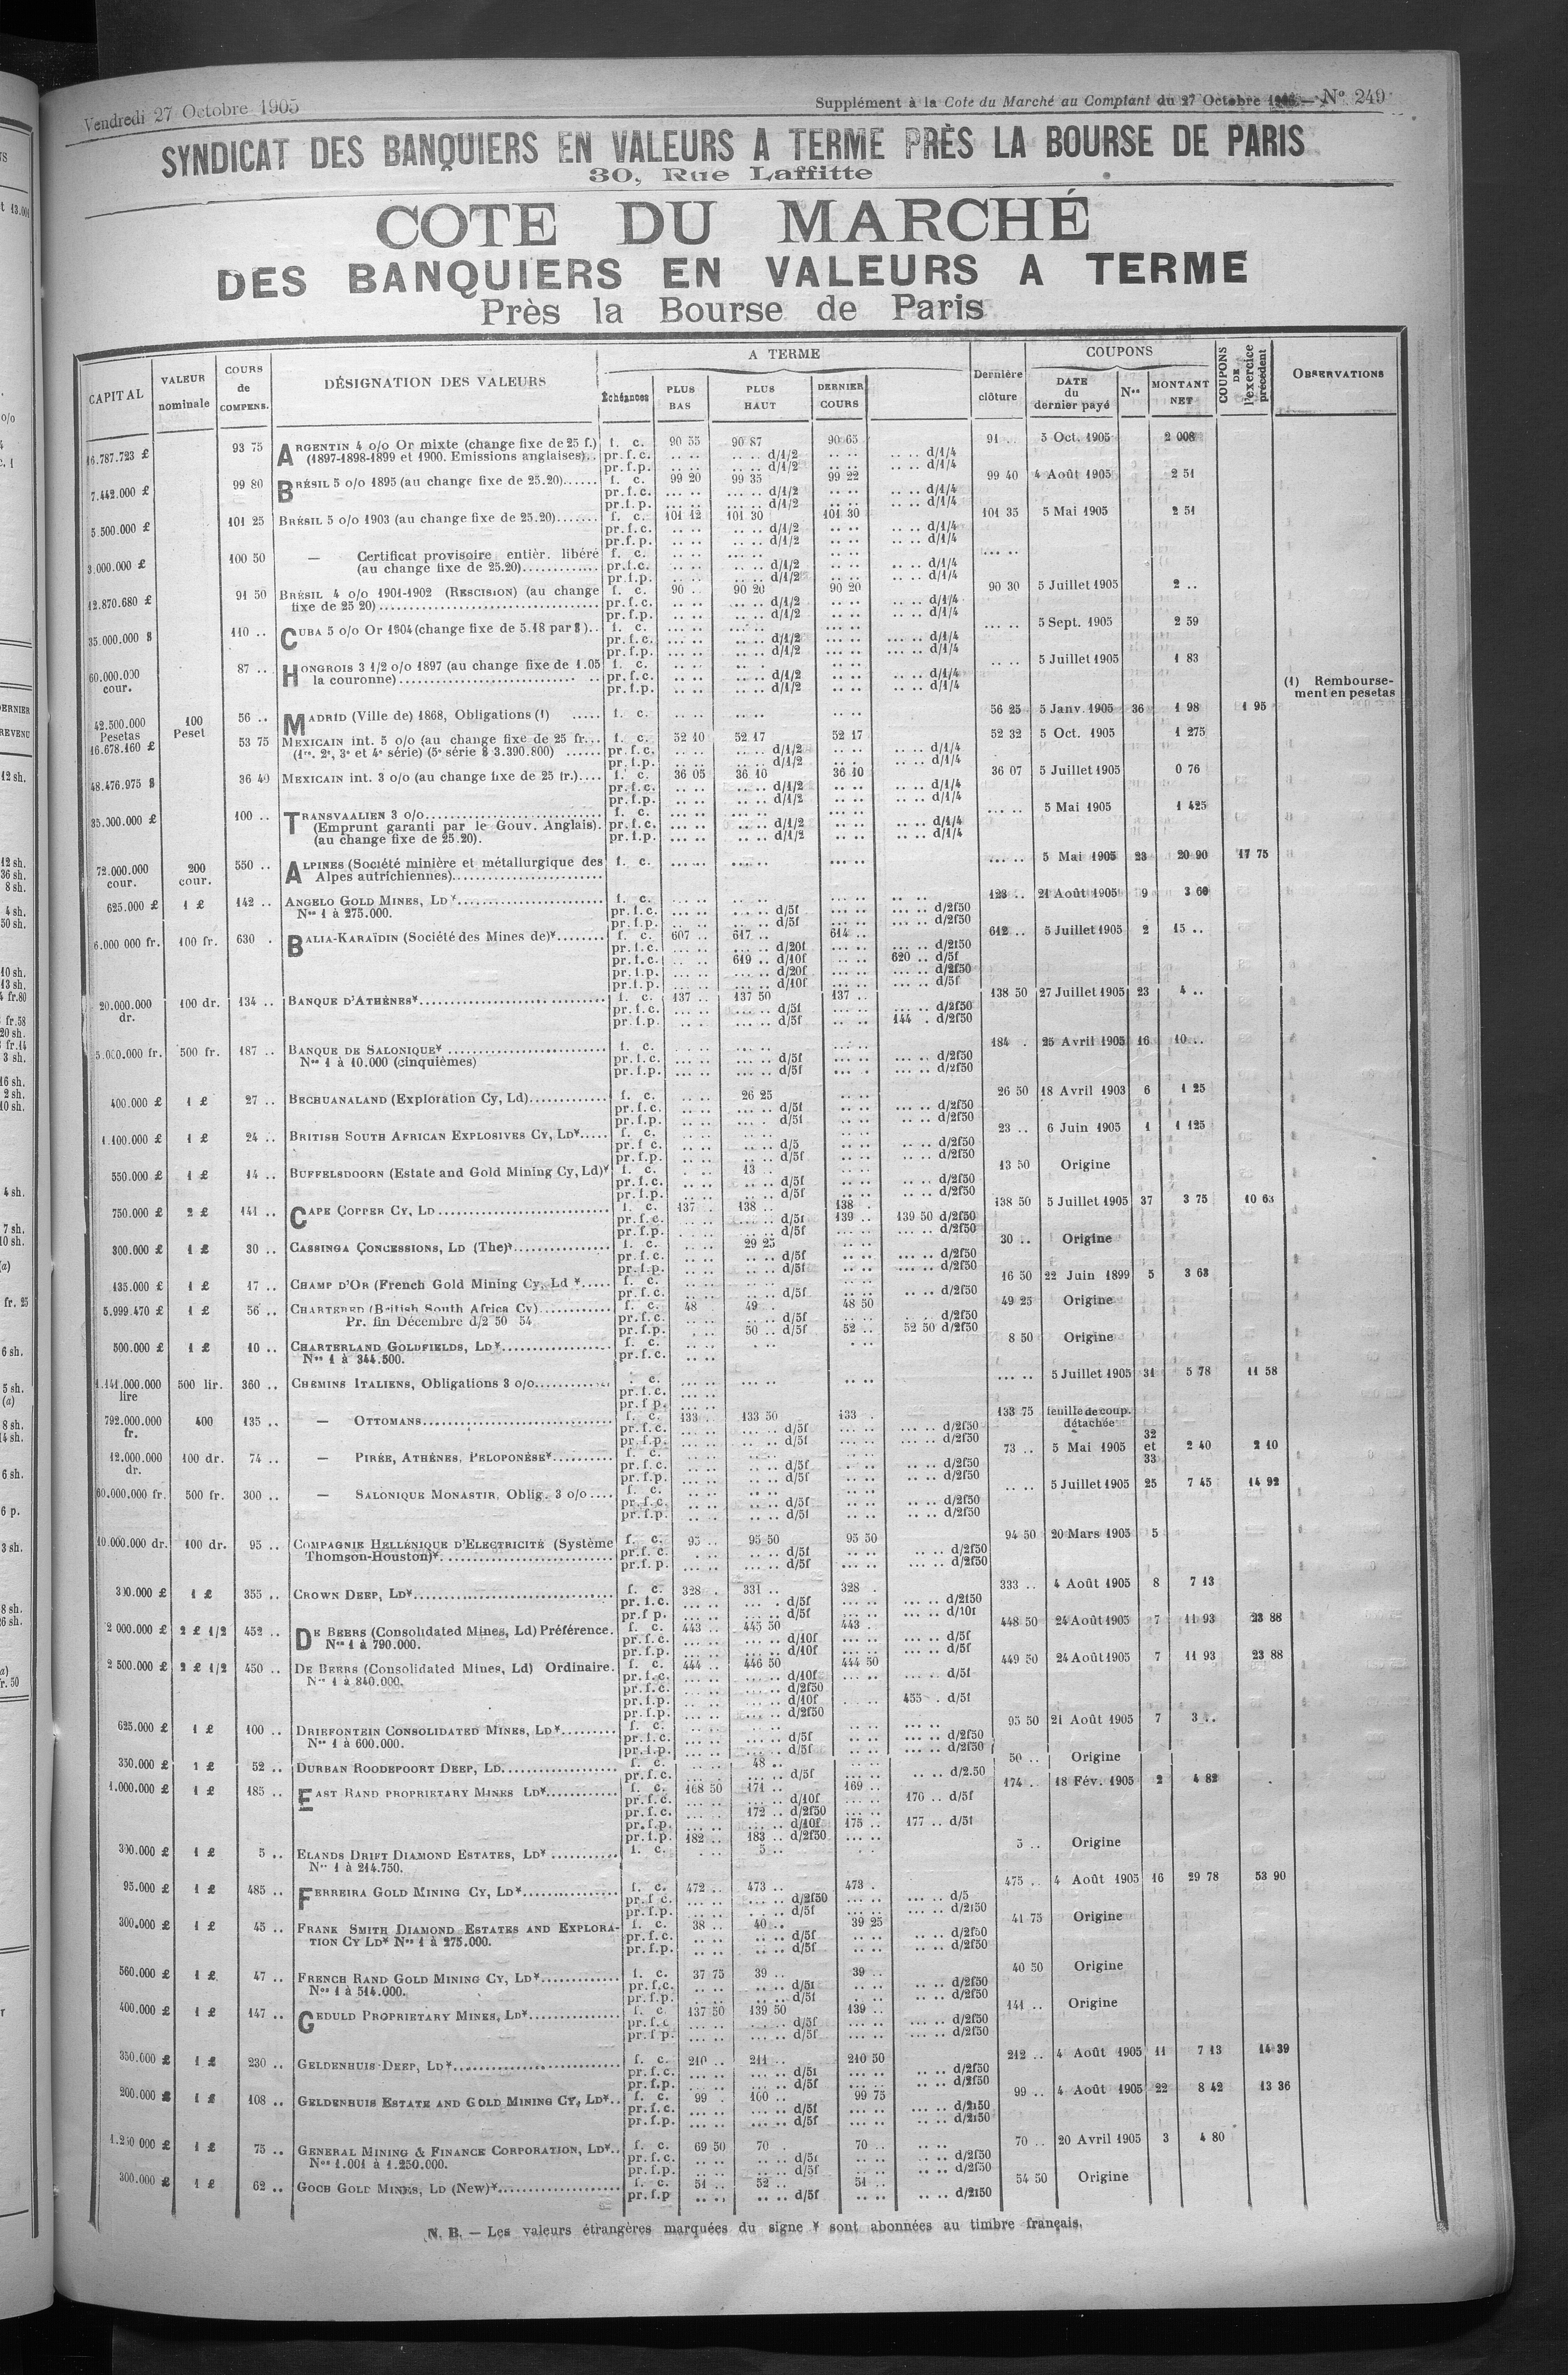 Vendredi 27 Octobre 1905
Supplément à la Cote du Marché au Comptant du 27 Octobre — N° 249
SYNDICAT DES BANQUIERS EN VALEURS A TERME PRÈS LA BOURSE DE PARIS
30, Rue Laffitte
COTE DU MARCHÉ
DES BANQUIERS EN VALEURS A TERME
Près la Bourse de Paris
CAPITAL VALEUR nominale COURS de COMPENS. DÉSIGNATION DES VALEURS A TERME Échéances PLUS BAS PLUS HAUT DERNIER COURS Dernière clôture COUPONS DATE du dernier payé Nos MONTANT NET COUPONS DE l'exercice précédent OBSERVATIONS
16.787.723 £ 93 75 ARGENTIN 4 o/o Or mixte (change fixe de 25 f.) f. c. 90 55 90 87 90 65 91 .. 5 Oct. 1905 2 008
(1897-1898-1899 et 1900. Emissions anglaises).. pr.f.c. .. .. .. .. d/1/2 .. .. .. .. d/1/4
pr.f.p. .. .. .. .. d/1/2 .. .. .. .. d/1/4
7.442.000 £ 99 80 BRÉSIL 5 o/o 1895 (au change fixe de 25.20)...... f. c. 99 20 99 35 99 22 99 40 4 Août 1905 2 51
pr.f.c. d/1/2 d/1/4
pr.f.p. d/1/2 d/1/4
5.500.000 £ 101 25 BRÉSIL 5 o/o 1903 (au change fixe de 25.20)....... f. c. 101 12 101 30 101 30 101 35 5 Mai 1905 2 51
pr.f.c. d/1/2 d/1/4
pr.f.p. d/1/2 d/1/4
3.000.000 £ 100 50 — Certificat provisoire entièr. libéré f. c.
(au change fixe de 25.20)............. pr.f.c. d/1/2 d/1/4
pr.f.p. d/1/2 d/1/4
12.870.680 £ 91 50 BRÉSIL 4 o/o 1901-1902 (RESCISION) (au change f. c. 90 .. 90 20 90 20 90 30 5 Juillet 1905 2 ..
fixe de 25 20) pr.f.c. d/1/2 d/1/4
pr.f.p. d/1/2 d/1/4
35.000.000 $ 110 .. CUBA 5 o/o Or 1904 (change fixe de 5.18 par $).. f. c. 5 Sept. 1905 2 59
pr.f.c. d/1/2 d/1/4
pr.f.p. d/1/2 d/1/4
60.000.000 cour. 87 .. HONGROIS 3 1/2 o/o 1897 (au change fixe de 1.05 f. c. 5 Juillet 1905 1 83
la couronne) pr.f.c. d/1/2 d/1/4
pr.f.p. d/1/2 d/1/4
(1) Remboursement en pesetas
42.500.000 Pesetas 100 Peset 56 .. MADRID (Ville de) 1868, Obligations (1) ..... f. c. 56 25 5 Janv. 1905 36 1 98 1 95
16.678.160 £ 53 75 MEXICAIN int. 5 o/o (au change fixe de 25 fr... f. c. 52 10 52 17 52 17 52 32 5 Oct. 1905 1 275
(1re. 2e, 3e et 4e série) (5e série $ 3.390.800) ...... pr.f.c. d/1/2 d/1/4
pr.f.p. d/1/2 d/1/4
48.476.975 $ 36 40 MEXICAIN int. 3 o/o (au change fixe de 25 fr.).... f. c. 36 05 36 10 36 10 36 07 5 Juillet 1905 0 76
pr.f.c. d/1/2 d/1/4
pr.f.p. d/1/2 d/1/4
35.000.000 £ 100 .. TRANSVAALIEN 3 o/o f. c. 5 Mai 1905 1 425
(Emprunt garanti par le Gouv. Anglais). pr.f.c. d/1/2 d/1/4
(au change fixe de 25.20). pr.f.p. d/1/2 d/1/4
72.000.000 cour. 200 cour. 550 .. ALPINES (Société minière et métallurgique des f. c. 5 Mai 1905 23 20 90 17 75
Alpes autrichiennes)
625.000 £ 1 £ 142 .. ANGELO GOLD MINES, LD* f. c. 123 .. 21 Août 1905 9 3 60
Nos 1 à 275.000. pr.f.c. d/5f d/2f50
pr.f.p. d/5f d/2f50
6.000 000 fr. 100 fr. 630 . BALIA-KARAÏDIN (Société des Mines de)*........ f. c. 607 .. 617 .. 614 .. 612 .. 5 Juillet 1905 2 15 ..
pr.f.c. d/20f d/2f50
pr.f.c. 619 .. d/10f 620 .. d/5f
pr.f.p. d/20f d/2f50
pr.f.p. d/10f d/5f
20.000.000 dr. 100 dr. 134 .. BANQUE D'ATHÈNES* f. c. 137 .. 137 50 137 .. 138 50 27 Juillet 1905 23 4 ..
pr.f.c. d/5f d/2f50
pr.f.p. d/5f 144 . d/2f50
5.000.000 fr. 500 fr. 187 .. BANQUE DE SALONIQUE* f. c. 184 . 25 Avril 1905 16 10 ..
Nos 1 à 10.000 (cinquièmes) pr.f.c. d/5f d/2f50
pr.f.p. d/5f d/2f50
400.000 £ 1 £ 27 .. BECHUANALAND (Exploration Cy, Ld)............. f. c. 26 25 26 50 18 Avril 1903 6 1 25
pr.f.c. d/5f d/2f50
pr.f.p. d/5f d/2f50
1.100.000 £ 1 £ 24 .. BRITISH SOUTH AFRICAN EXPLOSIVES CY, LD*..... f. c. 23 .. 6 Juin 1905 1 1 125
pr.f c. d/5 d/2f50
pr.f.p. d/5f d/2f50
550.000 £ 1 £ 14 .. BUFFELSDOORN (Estate and Gold Mining Cy, Ld)* f. c. 13 .. 13 50 Origine
pr.f.c. d/5f d/2f50
pr.f.p. d/5f d/2f50
750.000 £ 2 £ 141 .. CAPE COPPER CY, LD f. c. 137 .. 138 .. 138 .. 138 50 5 Juillet 1905 37 3 75 10 63
pr.f.c. d/5f 139 .. 139 50 d/2f50
pr.f.p. d/5f d/2f50
300.000 £ 1 £ 30 .. CASSINGA CONCESSIONS, LD (The)* f. c. 29 25 30 .. Origine
pr.f.c. d/5f d/2f50
pr.f.p. d/5f d/2f50
135.000 £ 1 £ 17 .. CHAMP D'OR (French Gold Mining Cy, Ld *..... f. c. 16 50 22 Juin 1899 5 3 63
pr.f.c. d/5f d/2f50
5.999.470 £ 1 £ 56 .. CHARTERED (British South Africa Cy)............ f. c. 48 49 . 48 50 49 25 Origine
Pr. fin Décembre d/2 50 54 pr.f.c. d/5f d/2f50
pr.f.p. 50 .. d/5f 52 .. 52 50 d/2f50
500.000 £ 1 £ 10 .. CHARTERLAND GOLDFIELDS, LD* f. c. 8 50 Origine
Nos 1 à 344.500. pr.f.c.
1.141.000.000 lire 500 lir. 360 .. CHEMINS ITALIENS, Obligations 3 o/o . c. 5 Juillet 1905 31 5 78 11 58
pr.f.c.
pr.f p.
792.000.000 fr. 400 135 .. — OTTOMANS f. c. 133 . 133 50 133 . 133 75 feuille de coup. détachée
pr.f.c. d/5f d/2f50
pr.f.p. d/5f d/2f50
12.000.000 dr. 100 dr. 74 .. — PIRÉE, ATHÈNES, PELOPONÈSE*.......... f. c. 73 .. 5 Mai 1905 32 et 33 2 40 2 10
pr.f.c. d/5f d/2f50
pr.f.p. d/5f d/2f50
60.000.000 fr. 500 fr. 300 .. — SALONIQUE MONASTIR, Oblig. 3 o/o .... f. c. 5 Juillet 1905 25 7 45 14 92
pr.f.c. d/5f d/2f50
pr.f.p. d/5f d/2f50
10.000.000 dr. 100 dr. 95 .. COMPAGNIE HELLÉNIQUE D'ELECTRICITÉ (Système f. c. 95 .. 95 50 95 50 94 50 20 Mars 1905 5
Thomson-Houston)* pr.f.c. d/5f d/2f50
pr.f.p. d/5f d/2f50
300.000 £ 1 £ 355 .. CROWN DEEP, LD* f. c. 328 . 331 .. 328 . 333 .. 4 Août 1905 8 7 13
pr.f.c. d/5f d/2f50
pr.f p. d/5f d/10f
2 000.000 £ 2 £ 1/2 452 .. DE BEERS (Consolidated Mines, Ld) Préférence. f. c. 443 .. 445 50 443 . 448 50 24 Août 1905 7 11 93 23 88
Nos 1 à 790.000. pr.f.c. d/10f d/5f
pr.f.p. d/10f d/5f
2 500.000 £ 2 £ 1/2 450 .. DE BEERS (Consolidated Mines, Ld) Ordinaire. f. c. 444 .. 446 50 444 50 449 50 24 Août 1905 7 11 93 23 88
Nos 1 à 840.000. pr.f.c. d/10f d/5f
pr.f.c. d/2f50
pr.f.p. d/10f 455 . d/5f
pr.f.p. d/2f50
625.000 £ 1 £ 100 .. DRIEFONTEIN CONSOLIDATED MINES, LD*......... f. c. 95 50 21 Août 1905 7 3 ..
Nos 1 à 600.000. pr.f.c. d/5f d/2f50
pr.f.p. d/5f d/2f50
350.000 £ 1 £ 52 .. DURBAN ROODEPOORT DEEP, LD f. c. 48 .. 50 .. Origine
pr.f.c. d/5f d/2.50
1.000.000 £ 1 £ 185 .. EAST RAND PROPRIETARY MINES LD*............ f. c. 168 50 171 .. 169 .. 174 .. 18 Fév. 1905 2 4 82
pr.f.c. d/10f 170 .. d/5f
pr.f.c. 172 .. d/2f50
pr.f.p. d/10f 175 .. 177 .. d/5f
pr.f.p. 182 .. 183 .. d/2f50
300.000 £ 1 £ 5 .. ELANDS DRIFT DIAMOND ESTATES, LD* f. c. 5 .. 5 .. Origine
Nos 1 à 214.750.
95.000 £ 1 £ 485 .. FERREIRA GOLD MINING CY, LD* f. c. 472 .. 473 .. 473 . 475 .. 4 Août 1905 16 29 78 53 90
pr.f c. d/2f50 d/5
pr.f.p. d/5f d/2f50
300.000 £ 1 £ 45 .. FRANK SMITH DIAMOND ESTATES AND EXPLORA- f. c. 38 .. 40 .. 39 25 41 75 Origine
TION CY LD* Nos 1 à 275.000. pr.f.c. d/5f d/2f50
pr.f.p. d/5f d/2f50
560.000 £ 1 £ 47 .. FRENCH RAND GOLD MINING CY, LD*............. f. c. 37 75 39 .. 39 .. 40 50 Origine
Nos 1 à 514.000. pr.f.c. d/5f d/2f50
pr.f.p. d/5f d/2f50
400.000 £ 1 £ 147 .. GEDULD PROPRIETARY MINES, LD*............... f. c. 137 50 139 50 139 .. 141 .. Origine
pr.f.c d/5f d/2f50
pr.f p. d/5f d/2f50
350.000 £ 1 £ 230 .. GELDENHUIS DEEP, LD* f. c. 210 .. 211 .. 210 50 212 .. 4 Août 1905 11 7 13 14 39
pr.f.c. d/5f d/2f50
pr.f.p. d/5f d/2f50
200.000 £ 1 £ 108 .. GELDENHUIS ESTATE AND GOLD MINING CY, LD*.. f. c. 99 . 100 .. 99 75 99 .. 4 Août 1905 22 8 42 13 36
pr.f.c. d/5f d/2f50
pr.f.p. d/5f d/2f50
1.250 000 £ 1 £ 75 .. GENERAL MINING & FINANCE CORPORATION, LD*.. f. c. 69 50 70 . 70 .. 70 .. 20 Avril 1905 3 4 80
Nos 1.001 à 1.250.000. pr.f.c. d/5f d/2f50
pr.f.p. d/5f d/2f50
300.000 £ 1 £ 62 .. GOCH GOLD MINES, LD (New)* f. c. 51 .. 52 .. 51 .. 54 50 Origine
pr.f.p d/5f d/2f50
N. B. — Les valeurs étrangères marquées du signe * sont abonnées au timbre français.